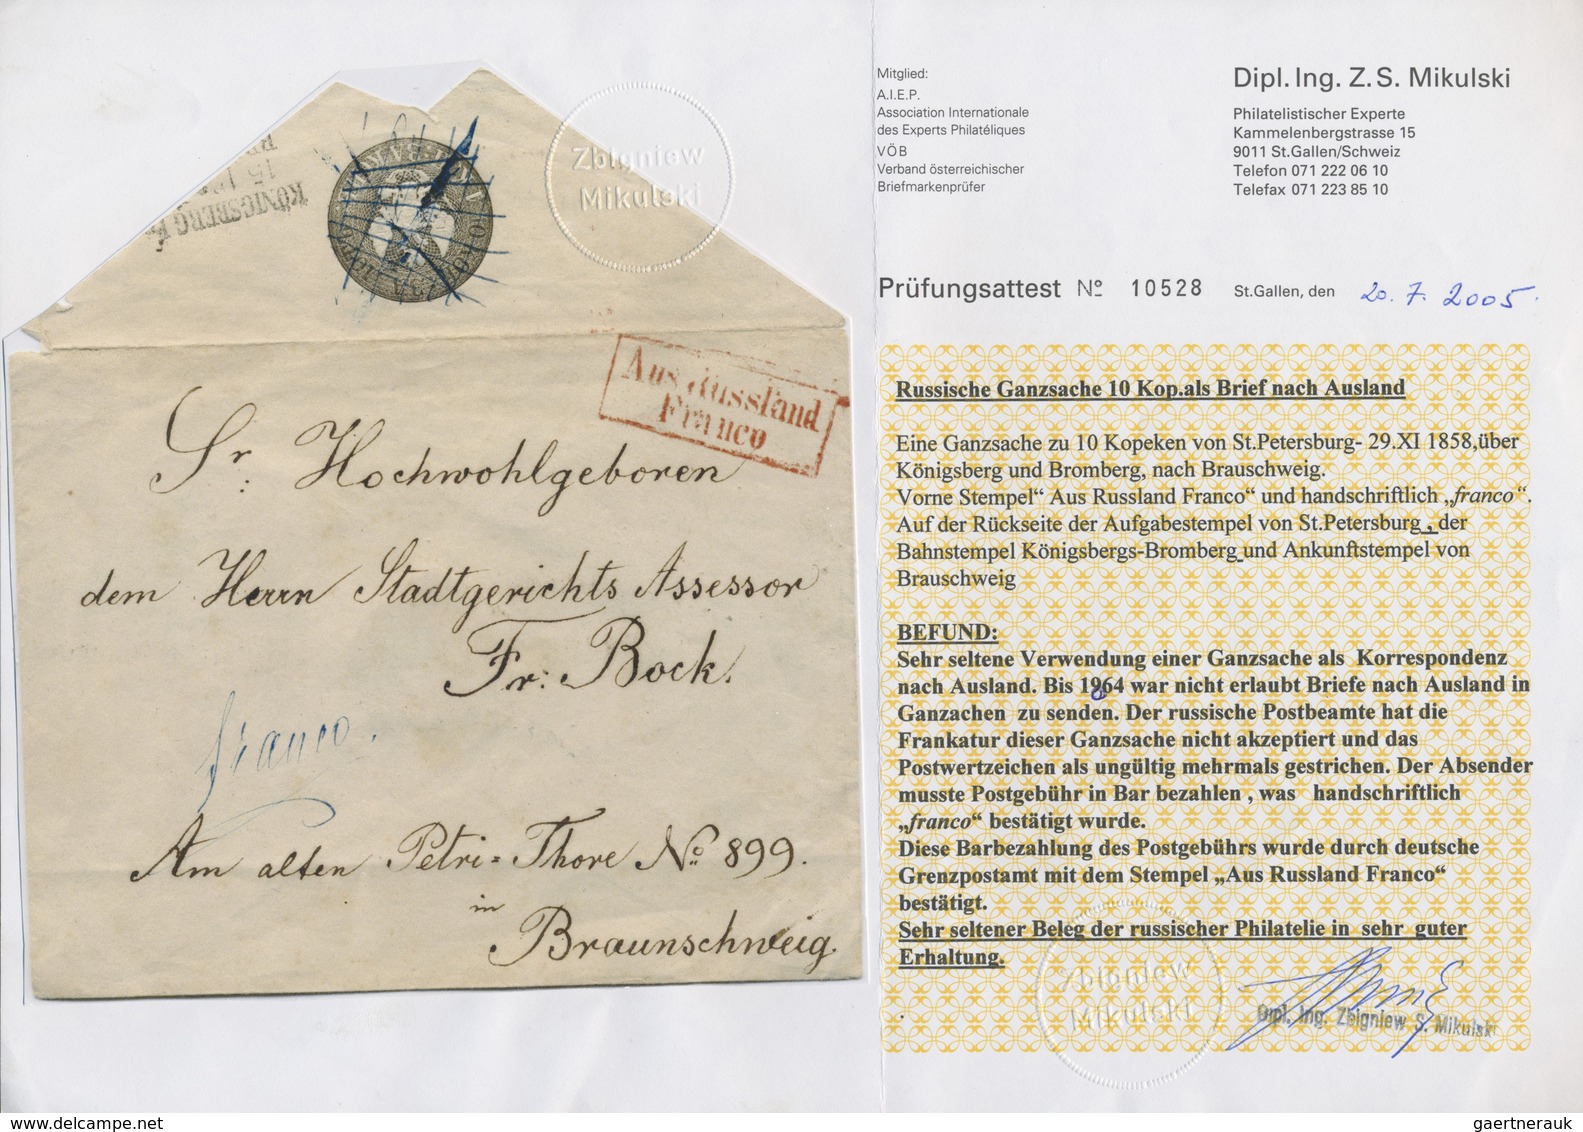 KÖNIGSBERG
15
Zbigniew
Mikulski
Aus Russland
Franco
Sr: Hochwohlgeboren
dem Herrn Stadtgerichts Assessor
Fr: Bock.
franco.
Am alten Petri=Thore No 899.
in
Braunschweig.
Mitglied:
A.I.E.P.
Association Internationale
des Experts Philatéliques
VÖB
Verband österreichischer
Briefmarkenprüfer
Dipl. Ing. Z. S. Mikulski
Philatelistischer Experte
Kammelenbergstrasse 15
9011 St.Gallen/Schweiz
Telefon 071 222 06 10
Telefax 071 223 85 10
Prüfungsattest Nº 10528 St.Gallen, den 20. 7. 2005.
Russische Ganzsache 10 Kop.als Brief nach Ausland
Eine Ganzsache zu 10 Kopeken von St.Petersburg- 29.XI 1858,über
Königsberg und Bromberg, nach Brauschweig.
Vorne Stempel“ Aus Russland Franco“ und handschriftlich „franco“.
Auf der Rückseite der Aufgabestempel von St.Petersburg , der
Bahnstempel Königsbergs-Bromberg und Ankunftstempel von
Brauschweig
BEFUND:
Sehr seltene Verwendung einer Ganzsache als Korrespondenz
nach Ausland. Bis 1864 war nicht erlaubt Briefe nach Ausland in
Ganzachen zu senden. Der russische Postbeamte hat die
Frankatur dieser Ganzsache nicht akzeptiert und das
Postwertzeichen als ungültig mehrmals gestrichen. Der Absender
musste Postgebühr in Bar bezahlen , was handschriftlich
„franco“ bestätigt wurde.
Diese Barbezahlung des Postgebührs wurde durch deutsche
Grenzpostamt mit dem Stempel „Aus Russland Franco“
bestätigt.
Sehr seltener Beleg der russischer Philatelie in sehr guter
Erhaltung.
Zbigniew
Mikulski
Dipl. Ing. Zbigniew S. Mikulski
gaertnerauk @ delcampe.net